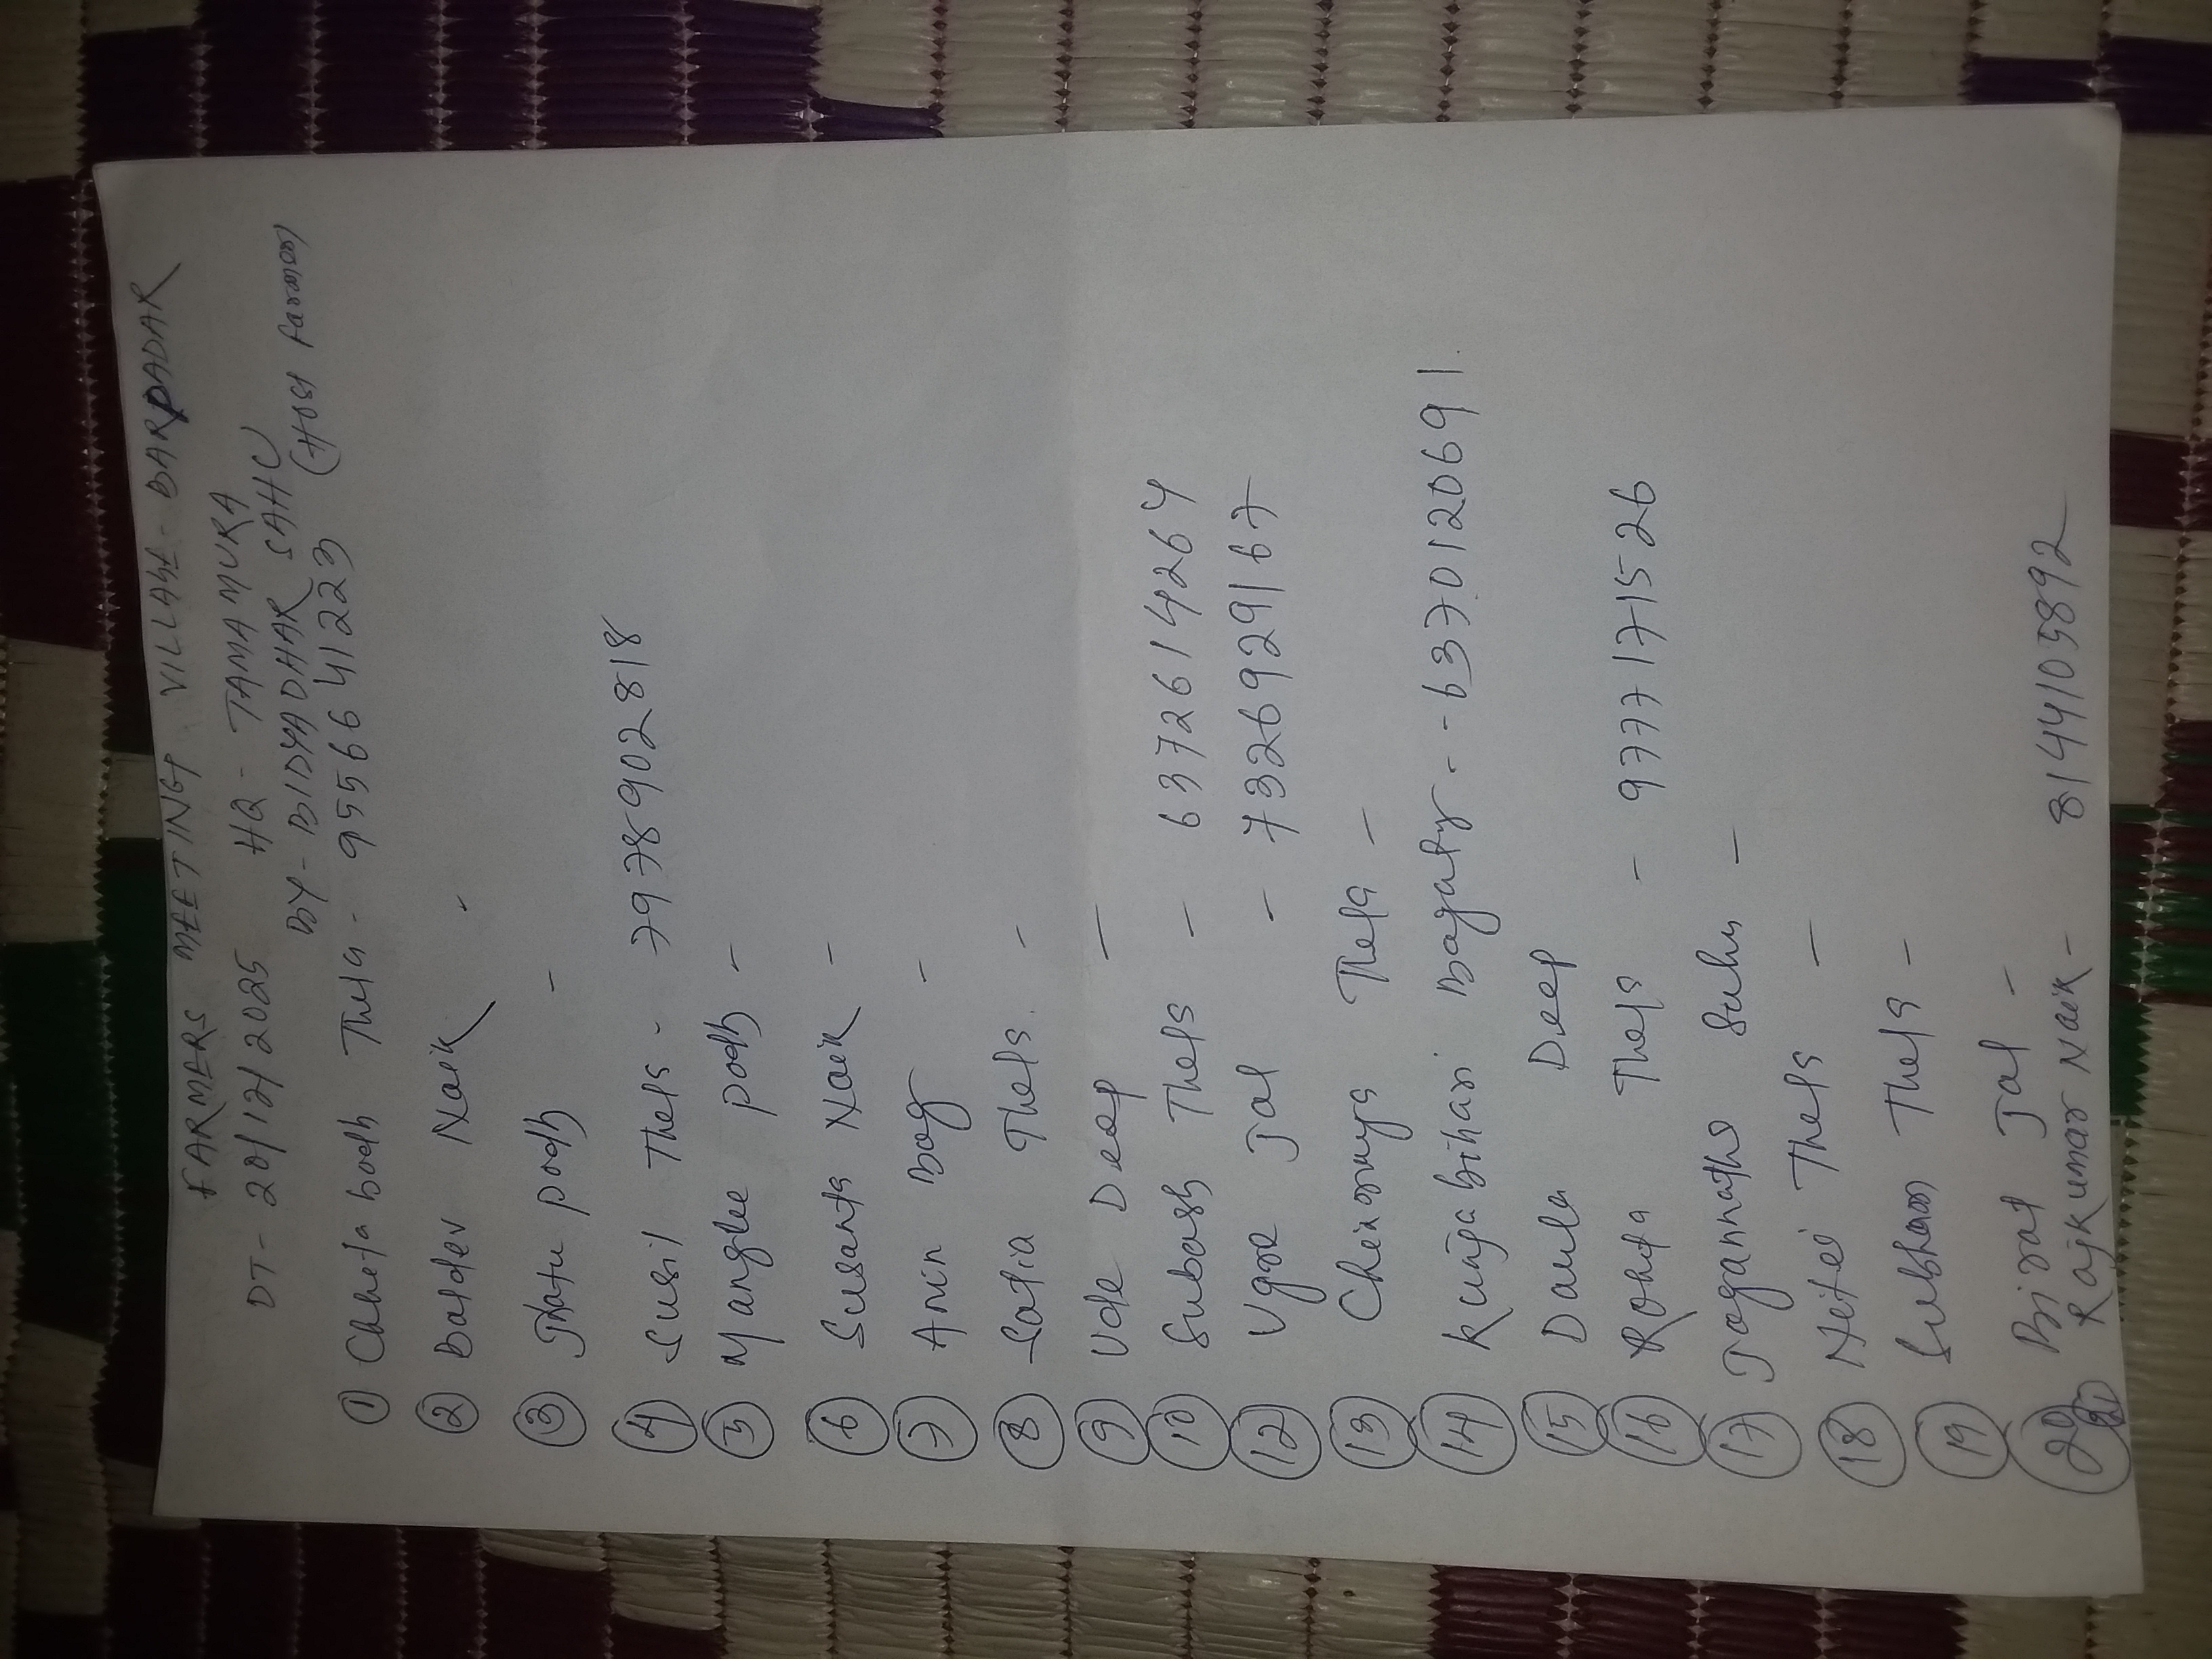 FARMERS MEETING VILLAGE - BARPADAR
DT - 20/12/2025 HQ - TAMAMURA
BY - BIDYADHAR SAHU
① Chheta bodh Thela - 9556641223 (Host farmer)
② Baldev Naik -
③ Jhatu podh -
④ Susil Thela - 7978902818
⑤ Manglu podh -
⑥ Susanta Naik -
⑦ Amin Bag -
⑧ Satia Thela. -
⑨ Ude Deep -
⑩ Subash Thela - 6372614264
⑫ Ugre Jal - 7326929167
⑬ Chinmaya Thela -
⑭ Kunja bihari Bagarty - - 6370120691.
⑮ Daula Deep
⑯ Rohita Thela - 9777171526
⑰ Jagannatha Sahu -
⑱ Neter Thela -
⑲ Subham Thela -
⑳ Birat Jal -
㉑ Rajkumar Naik - 8144103892